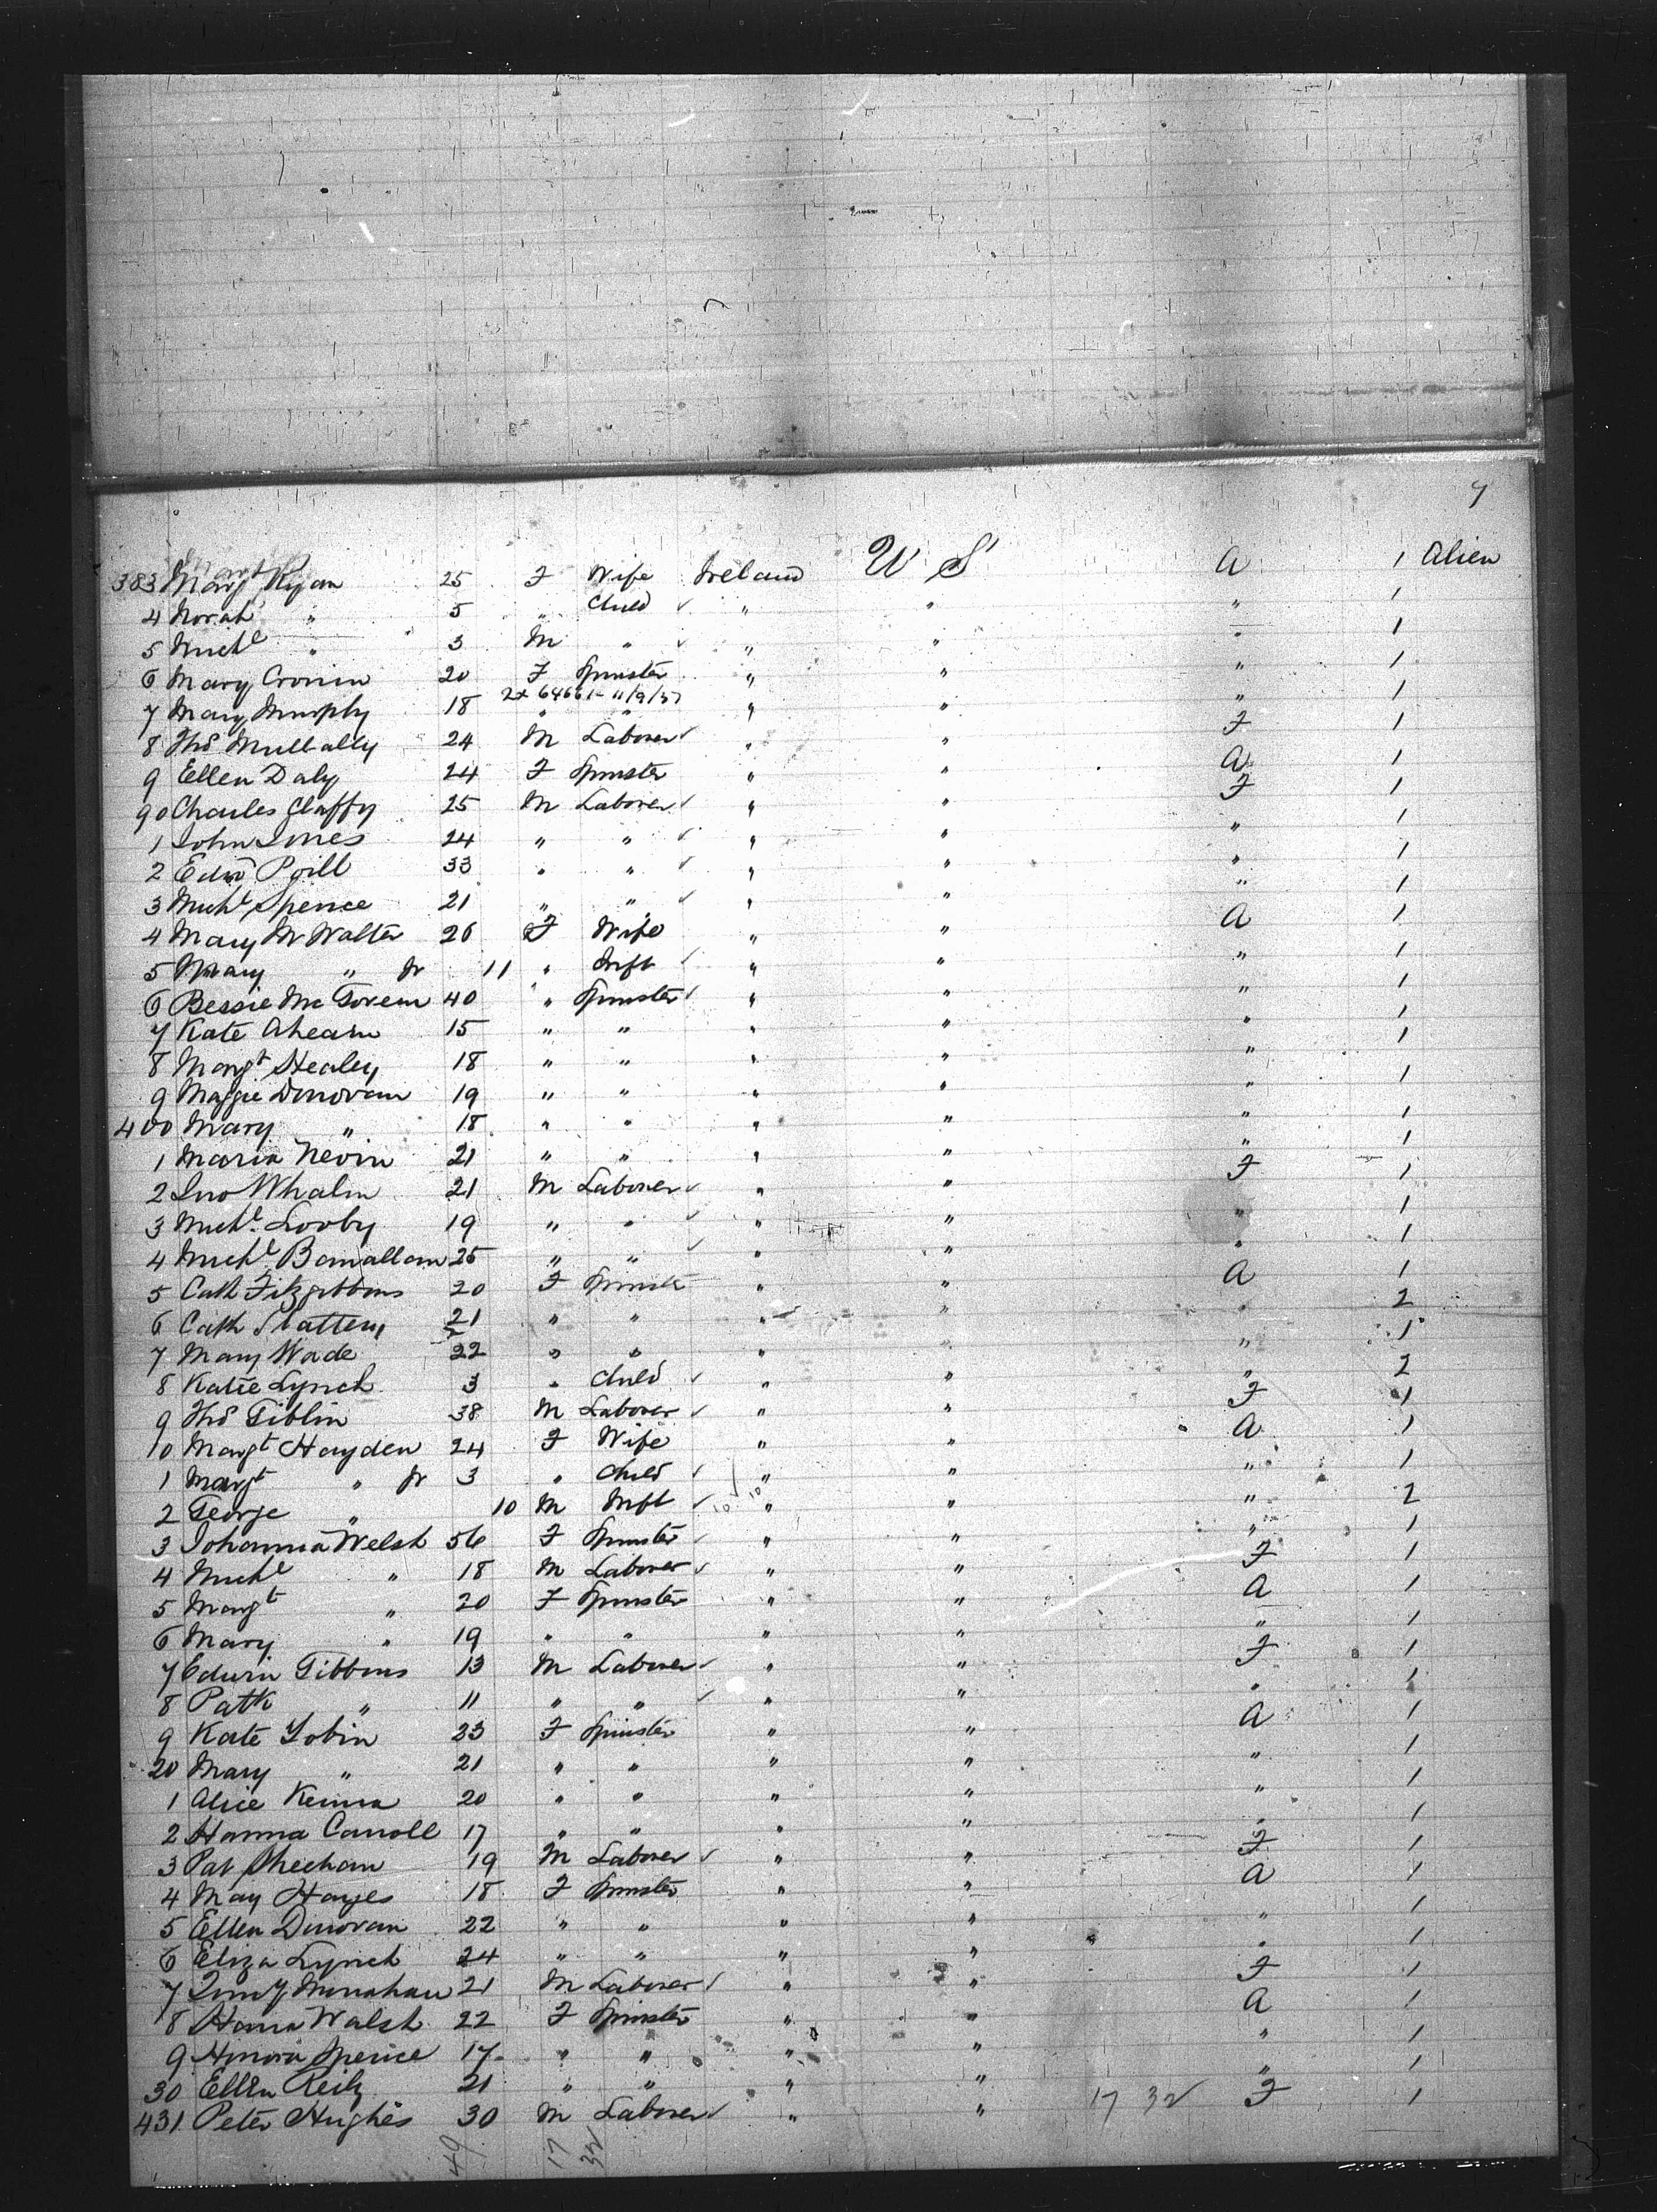 7
383 Margt Ryan 25 F Wife Ireland U S A 1 Alien
4 Norah " 5 " Child " " " 1
5 Michl " 3 M " " " " 1
6 Mary Cronin 20 F Spinster " " " 1
7 Mary Murphy 18 " " " " " 1
8 Thos Mullally 24 M Laborer " " F 1
9 Ellen Daly 24 F Spinster " " A 1
90 Charles Claffy 25 M Laborer " " F 1
1 John Jones 24 " " " " " 1
2 Edwd 33 " " " " " 1
3 Michl Spence 21 " " " " " 1
4 Mary McWalter 26 F Wife " " A 1
5 Mary " Jr 11 " Inft " " " 1
6 Bessie McGovern 40 " Spinster " " " 1
7 Kate Ahearn 15 " " " " " 1
8 Margt Healey 18 " " " " " 1
9 Maggie Donovan 19 " " " " " 1
400 Mary " 18 " " " " " 1
1 Maria Nevin 21 " " " " " 1
2 Jno Whalin 21 M Laborer " " F 1
3 Michl Looby 19 " " " " " 1
4 Michl 25 " " " " " 1
5 Cath Fitzgibbons 20 F Spinster " " A 1
6 Cath Slattery 21 " " " " " 2
7 Mary Wade 22 " " " " " 1
8 Katie Lynch 3 " Child " " " 2
9 Thos Giblin 38 M Laborer " " F 1
10 Margt Hayden 24 F Wife " " A 1
1 Margt " Jr 3 " Child " " " 1
2 George " 10 M Inft " " " 2
3 Johanna Welsh 56 F Spinster " " " 1
4 Michl " 18 M Laborer " " F 1
5 Margt " 20 F Spinster " " A 1
6 Mary " 19 " " " " " 1
7 Edwin Gibbons 13 M Laborer " " F 1
8 Patk " 11 " " " " " 1
9 Kate Tobin 23 F Spinster " " A 1
20 Mary " 21 " " " " " 1
1 Alice Kenna 20 " " " " " 1
2 Hanna Carroll 17 " " " " " 1
3 Pat Sheehan 19 M Laborer " " F 1
4 May Hayes 18 F Spinster " " A 1
5 Ellen Donovan 22 " " " " " 1
6 Eliza Lynch 24 " " " " " 1
7 Timy Monahan 21 M Laborer " " F 1
8 Hana Walsh 22 F Spinster " " A 1
9 Honora Spence 17 " " " " " 1
30 Ellen Reily 21 " " " " " 1
431 Peter Hughes 30 M Laborer " " 17 32 F 1
49 17 32